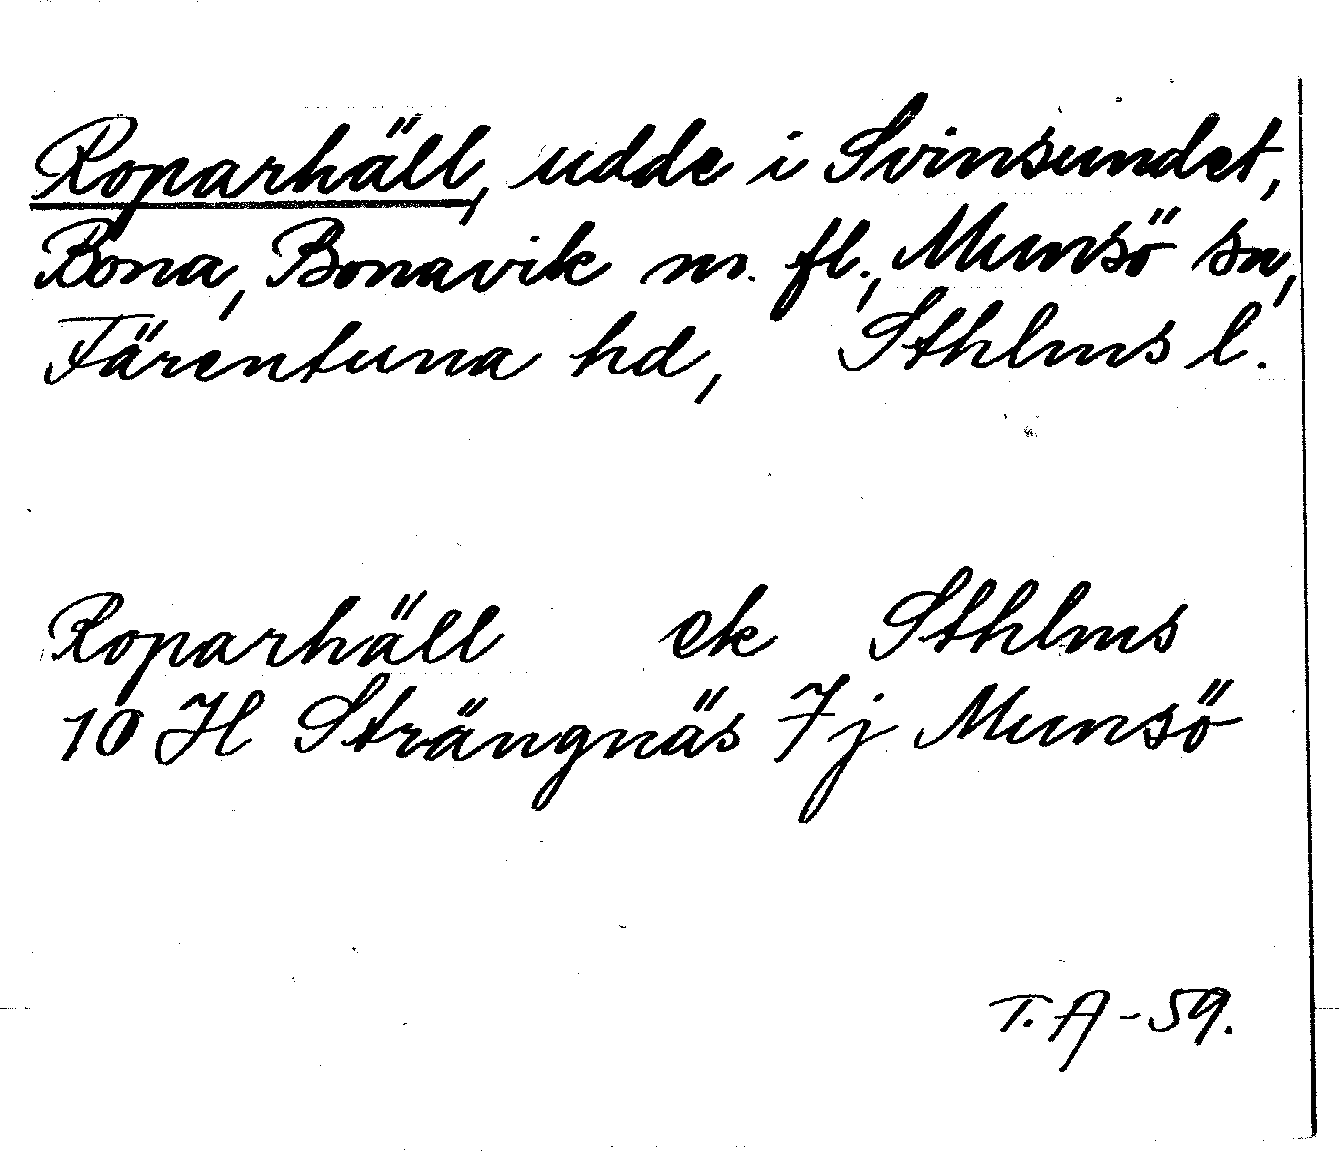 Roparhäll, udde i Svinsundet,
Bona, Bonavik m. fl., Munsö sn,
Färentuna hd, Sthlms l.
Roparhäll ek Sthlms
10 H Strängnäs 7j Munsö
T. A - 59.